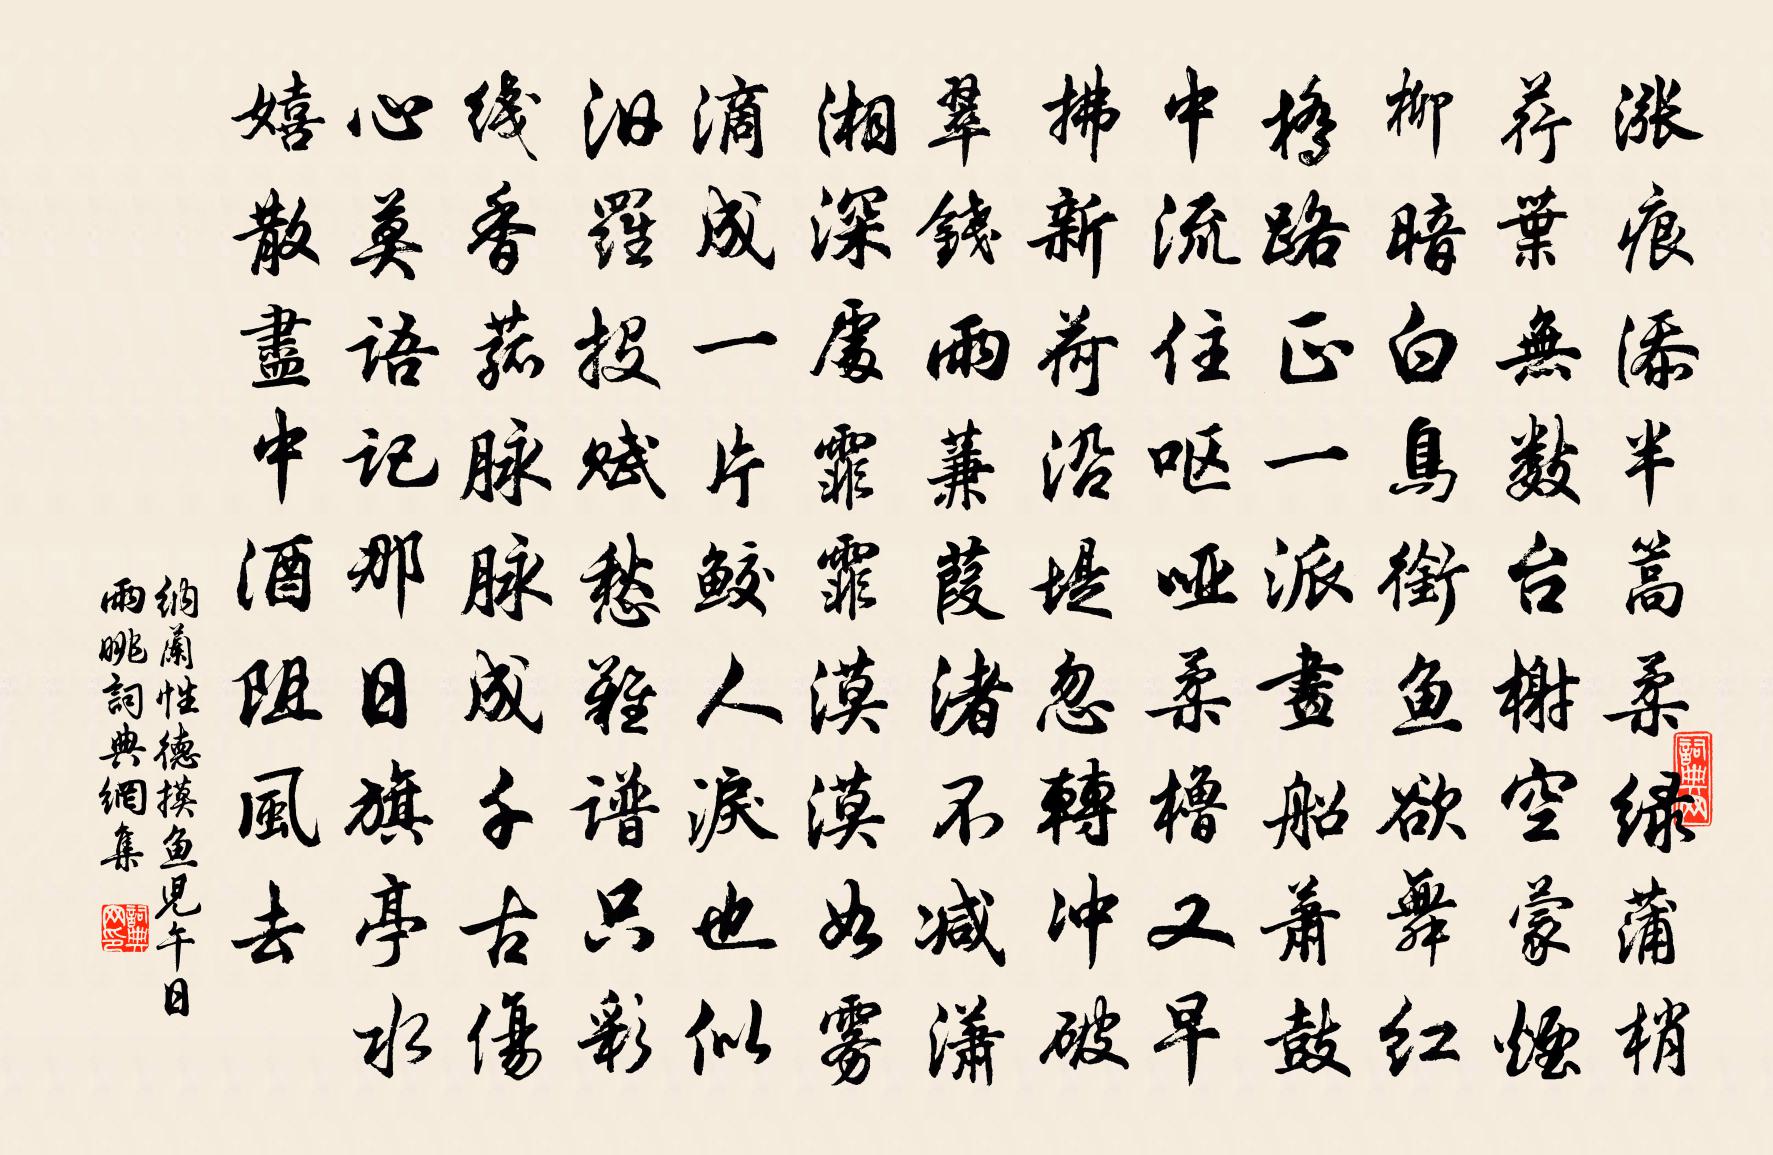 漲痕添半篙柔绿蒲梢
荇葉無數台榭空蒙煙
柳暗白鳥銜鱼欲舞红
橋路正一派畫船蕭鼓
中流住呕哑柔櫓又早
拂新荷沿堤忽轉冲破
翠錢雨蒹葭渚不减瀟
湘深處霏霏漠漠如雾
滴成一片鲛人淚也似
汨羅投赋愁難谱只彩
线香菰脉脉成千古傷
心莫语记那日旗亭水
嬉散盡中酒阻風去
纳蘭性德摸鱼児午日
雨眺詞典網集
詞典网
詞典网印